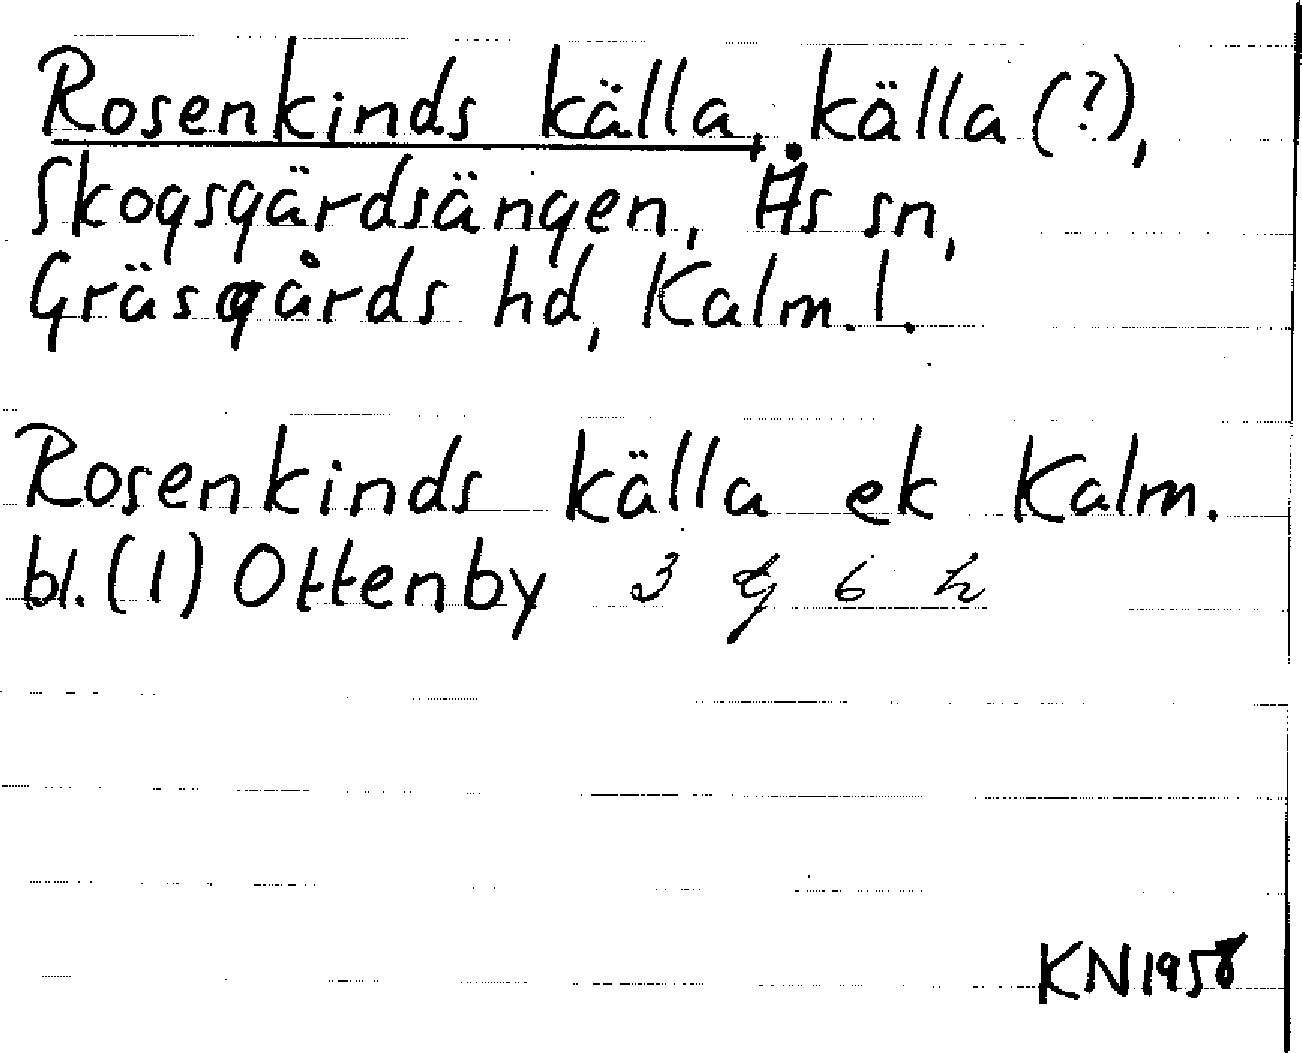 Rosenkinds källa, källa (?),
Skogsgärdsängen, Ås sn,
Gräsgårds hd, Kalm. l.
Rosenkinds källa ek Kalm.
bl. (1) Ottenby 3 G 6 h
KN 1958